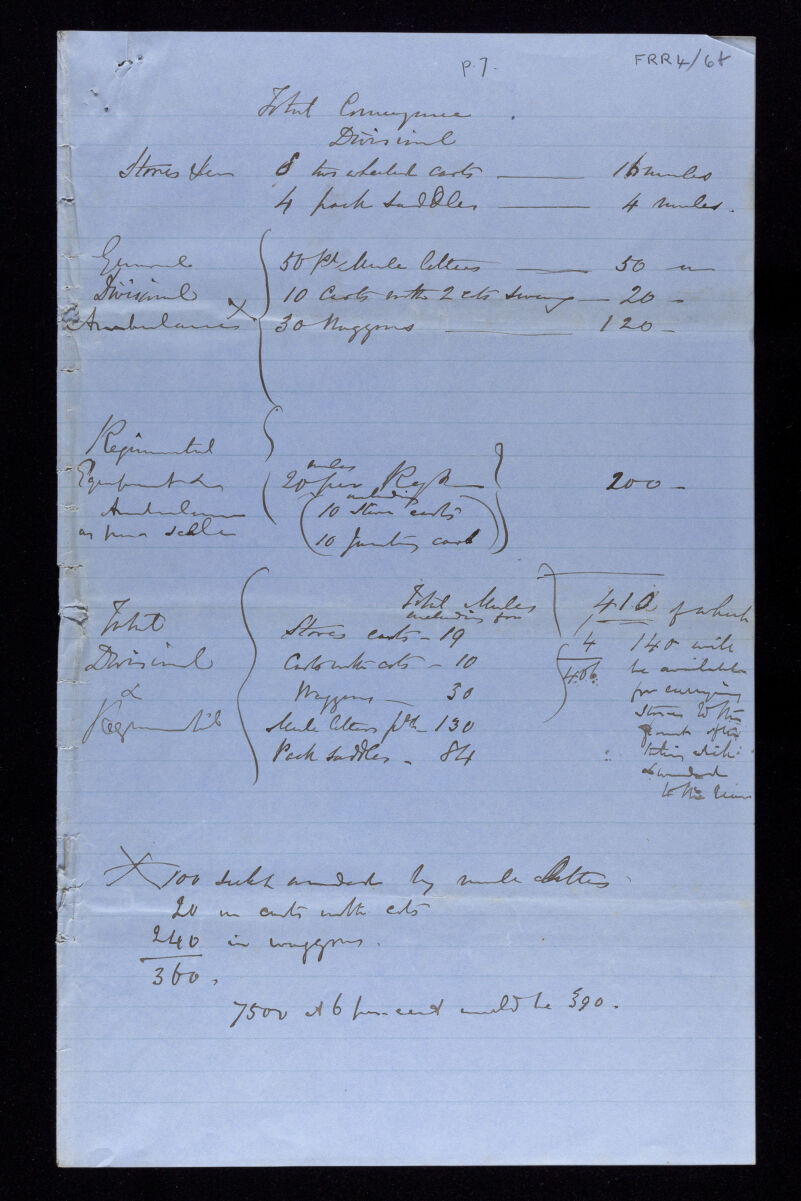 P.7.
FRR4/68
Total Conveyance
Divisional
Stores &
8 two wheeled carts — 16 mules
4 pack saddles — 4 mules.
General
Divisional
Ambulances X
50 pr Mule litters — 50 —
10 Carts with 2 cts swung — 20 —
30 Waggons — 120 —
Regimental
Equipment &
Ambulance
as per scale
mules
20 per Regt
including
(10 store carts
10 carts)
200 —
Total
Divisional
&
Regimental
Total Mules
including for
Stores carts – 19
Carts with cots – 10
Waggons — 30
Mule litters prs – 130
Pack saddles – 84
410 of which
4
406
140 will
be available
for carrying
stores to the
front &
taking sick
& wounded
to the rear
X 100 sick & wounded by mule litters
20 in carts with cots
240 in waggons.
360.
7500 at 6 per cent would be 390.